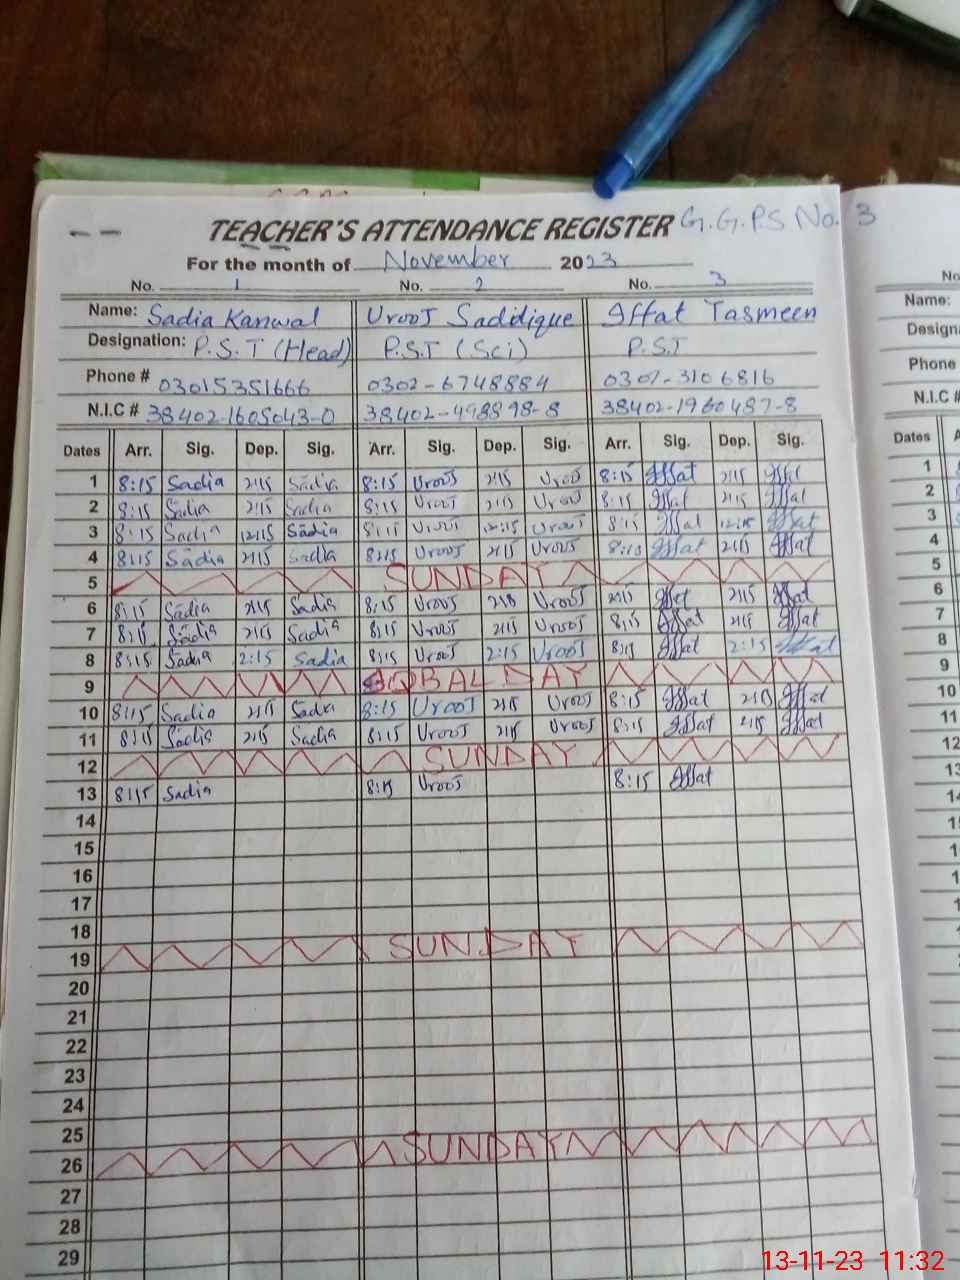 TEACHER'S ATTENDANCE REGISTER G.G.P.S No. 3
For the month of November 2023
No. 1 No. 2 No. 3
Name: Sadia Kanwal Urooj Saddique Iffat Tasmeen
Designation: P.S.T (Head) P.S.T (Sci) P.S.T
Phone # 03015351666 0302-6748884 0301-3106816
N.I.C # 38402-1605043-0 38402-498898-8 38402-1960487-8
Dates Arr. Sig. Dep. Sig. Arr. Sig. Dep. Sig. Arr. Sig. Dep. Sig.
1 8:15 Sadia 2:15 Sadia 8:15 Urooj 2:15 Urooj 8:15 Iffat 2:15 Iffat
2 8:15 Sadia 2:15 Sadia 8:15 Urooj 2:15 Urooj 8:15 Iffat 2:15 Iffat
3 8:15 Sadia 12:15 Sadia 8:15 Urooj 12:15 Urooj 8:15 Iffat 12:15 Iffat
4 8:15 Sadia 2:15 Sadia 8:15 Urooj 2:15 Urooj 8:15 Iffat 2:15 Iffat
5 SUNDAY
6 8:15 Sadia 2:15 Sadia 8:15 Urooj 2:15 Urooj Iffat 2:15 Iffat
7 8:15 Sadia 2:15 Sadia 8:15 Urooj 2:15 Urooj 8:15 Iffat 2:15 Iffat
8 8:15 Sadia 2:15 Sadia 8:15 Urooj 2:15 Urooj 8:15 Iffat 2:15 Iffat
9 DAY
10 8:15 Sadia 2:15 Sadia 8:15 Urooj 2:15 Urooj 8:15 Iffat 2:15 Iffat
11 8:15 Sadia 2:15 Sadia 8:15 Urooj 2:15 Urooj 8:15 Iffat 2:15 Iffat
12 SUNDAY
13 8:15 Sadia 8:15 Urooj 8:15 Iffat
14
15
16
17
18
19 SUNDAY
20
21
22
23
24
25
26 SUNDAY
27
28
29
No
Name:
Design
Phone
N.I.C #
Dates
1
2
3
4
5
6
7
8
9
10
11
12
13
14
13-11-23 11:32